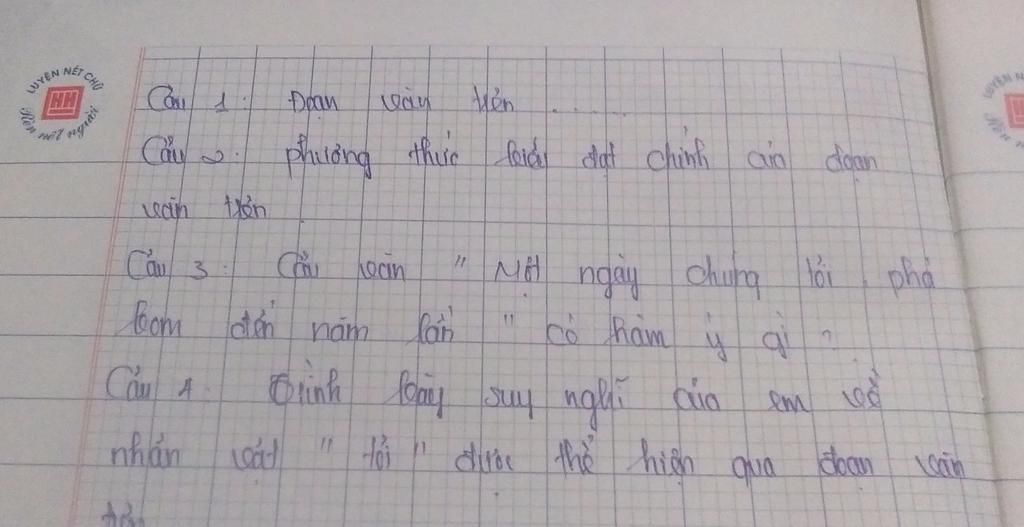 LUYỆN NÉT CHỮ
HH
Rèn nết người
Câu 1: Đoạn văn trên .....
Câu 2: phương thức biểu đạt chính của đoạn
văn trên
Câu 3: Câu văn " Một ngày chúng tôi phá
bom đến năm lần " có hàm ý gì ?
Câu 4. Trình bày suy nghĩ của em về
nhân vật " tôi " được thể hiện qua đoạn văn
trên